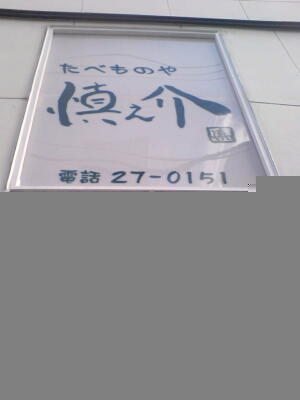 たべものや
慎之介
電話 27-0151